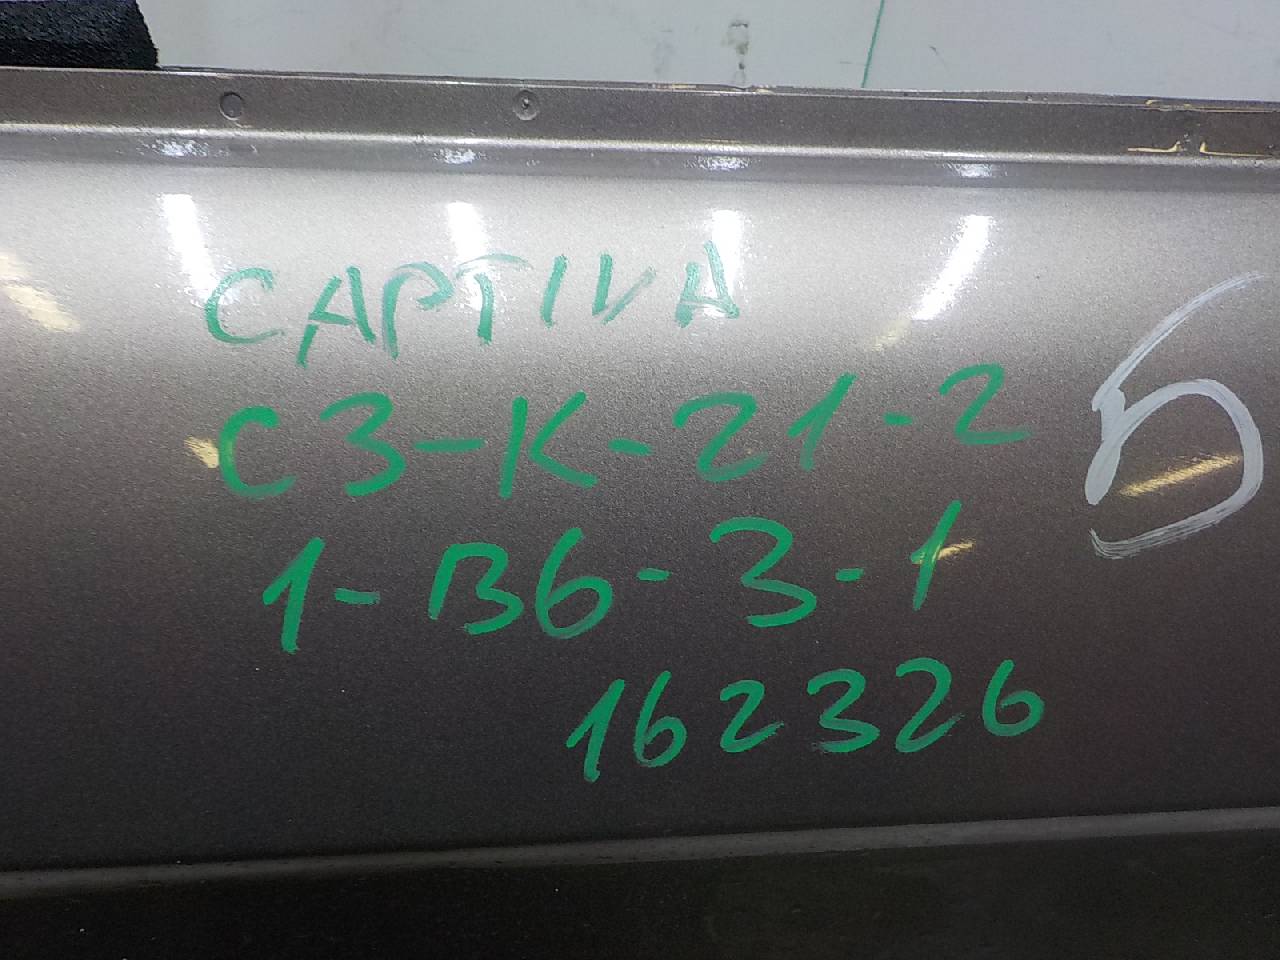 CAPTIVA
C3-K-21-2
1-B6-3-1
162326
Б